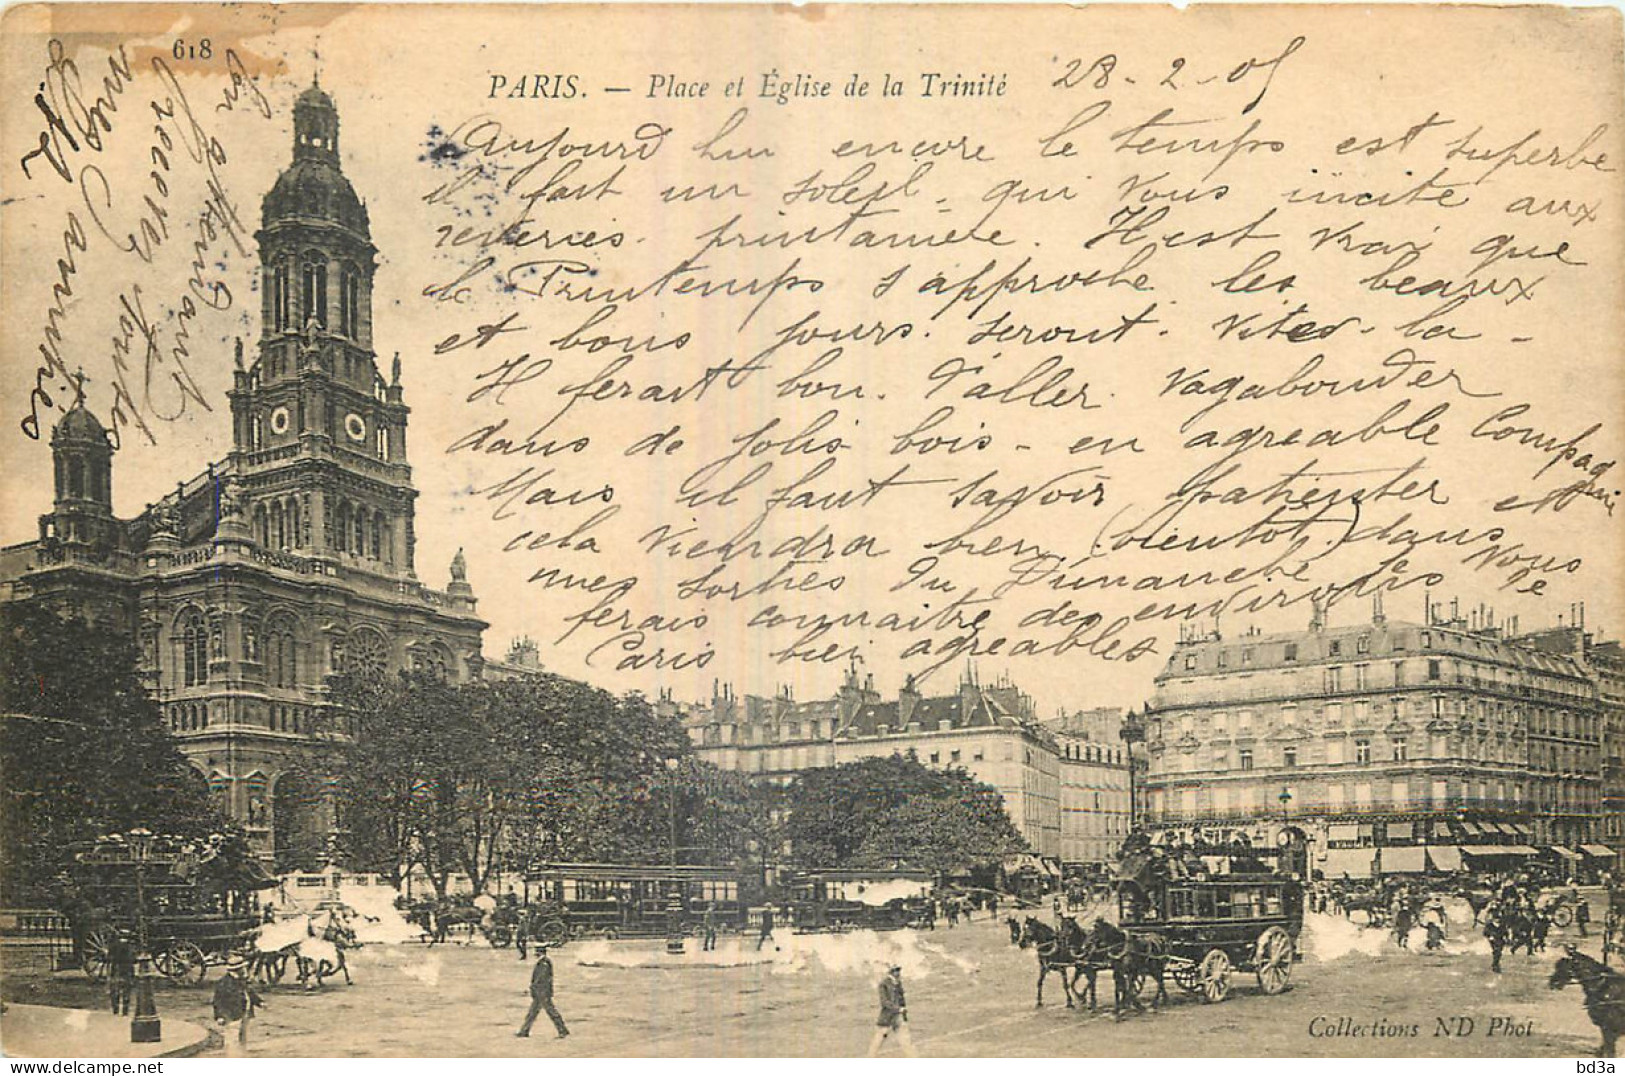 618
PARIS. — Place et Église de la Trinité
28-2-05
Aujourd hui encore le temps est superbe
il fait un soleil, qui vous incite aux
reveries. printaniere. Il est vrai que
le Printemps s'approche les beaux
et bons jours. seront. vites. la -
Il ferait bon. d'aller. vagabonder
dans de jolis bois - en agreable Compagnie
Mais il faut savoir patienter et
cela viendra bien (bientot) dans
mes sorties du Dimanche je vous
ferais connaitre des environs de
Paris bien agreables
En attendant
recevez toutes
mes amitiés
Collections ND Phot
bd3a